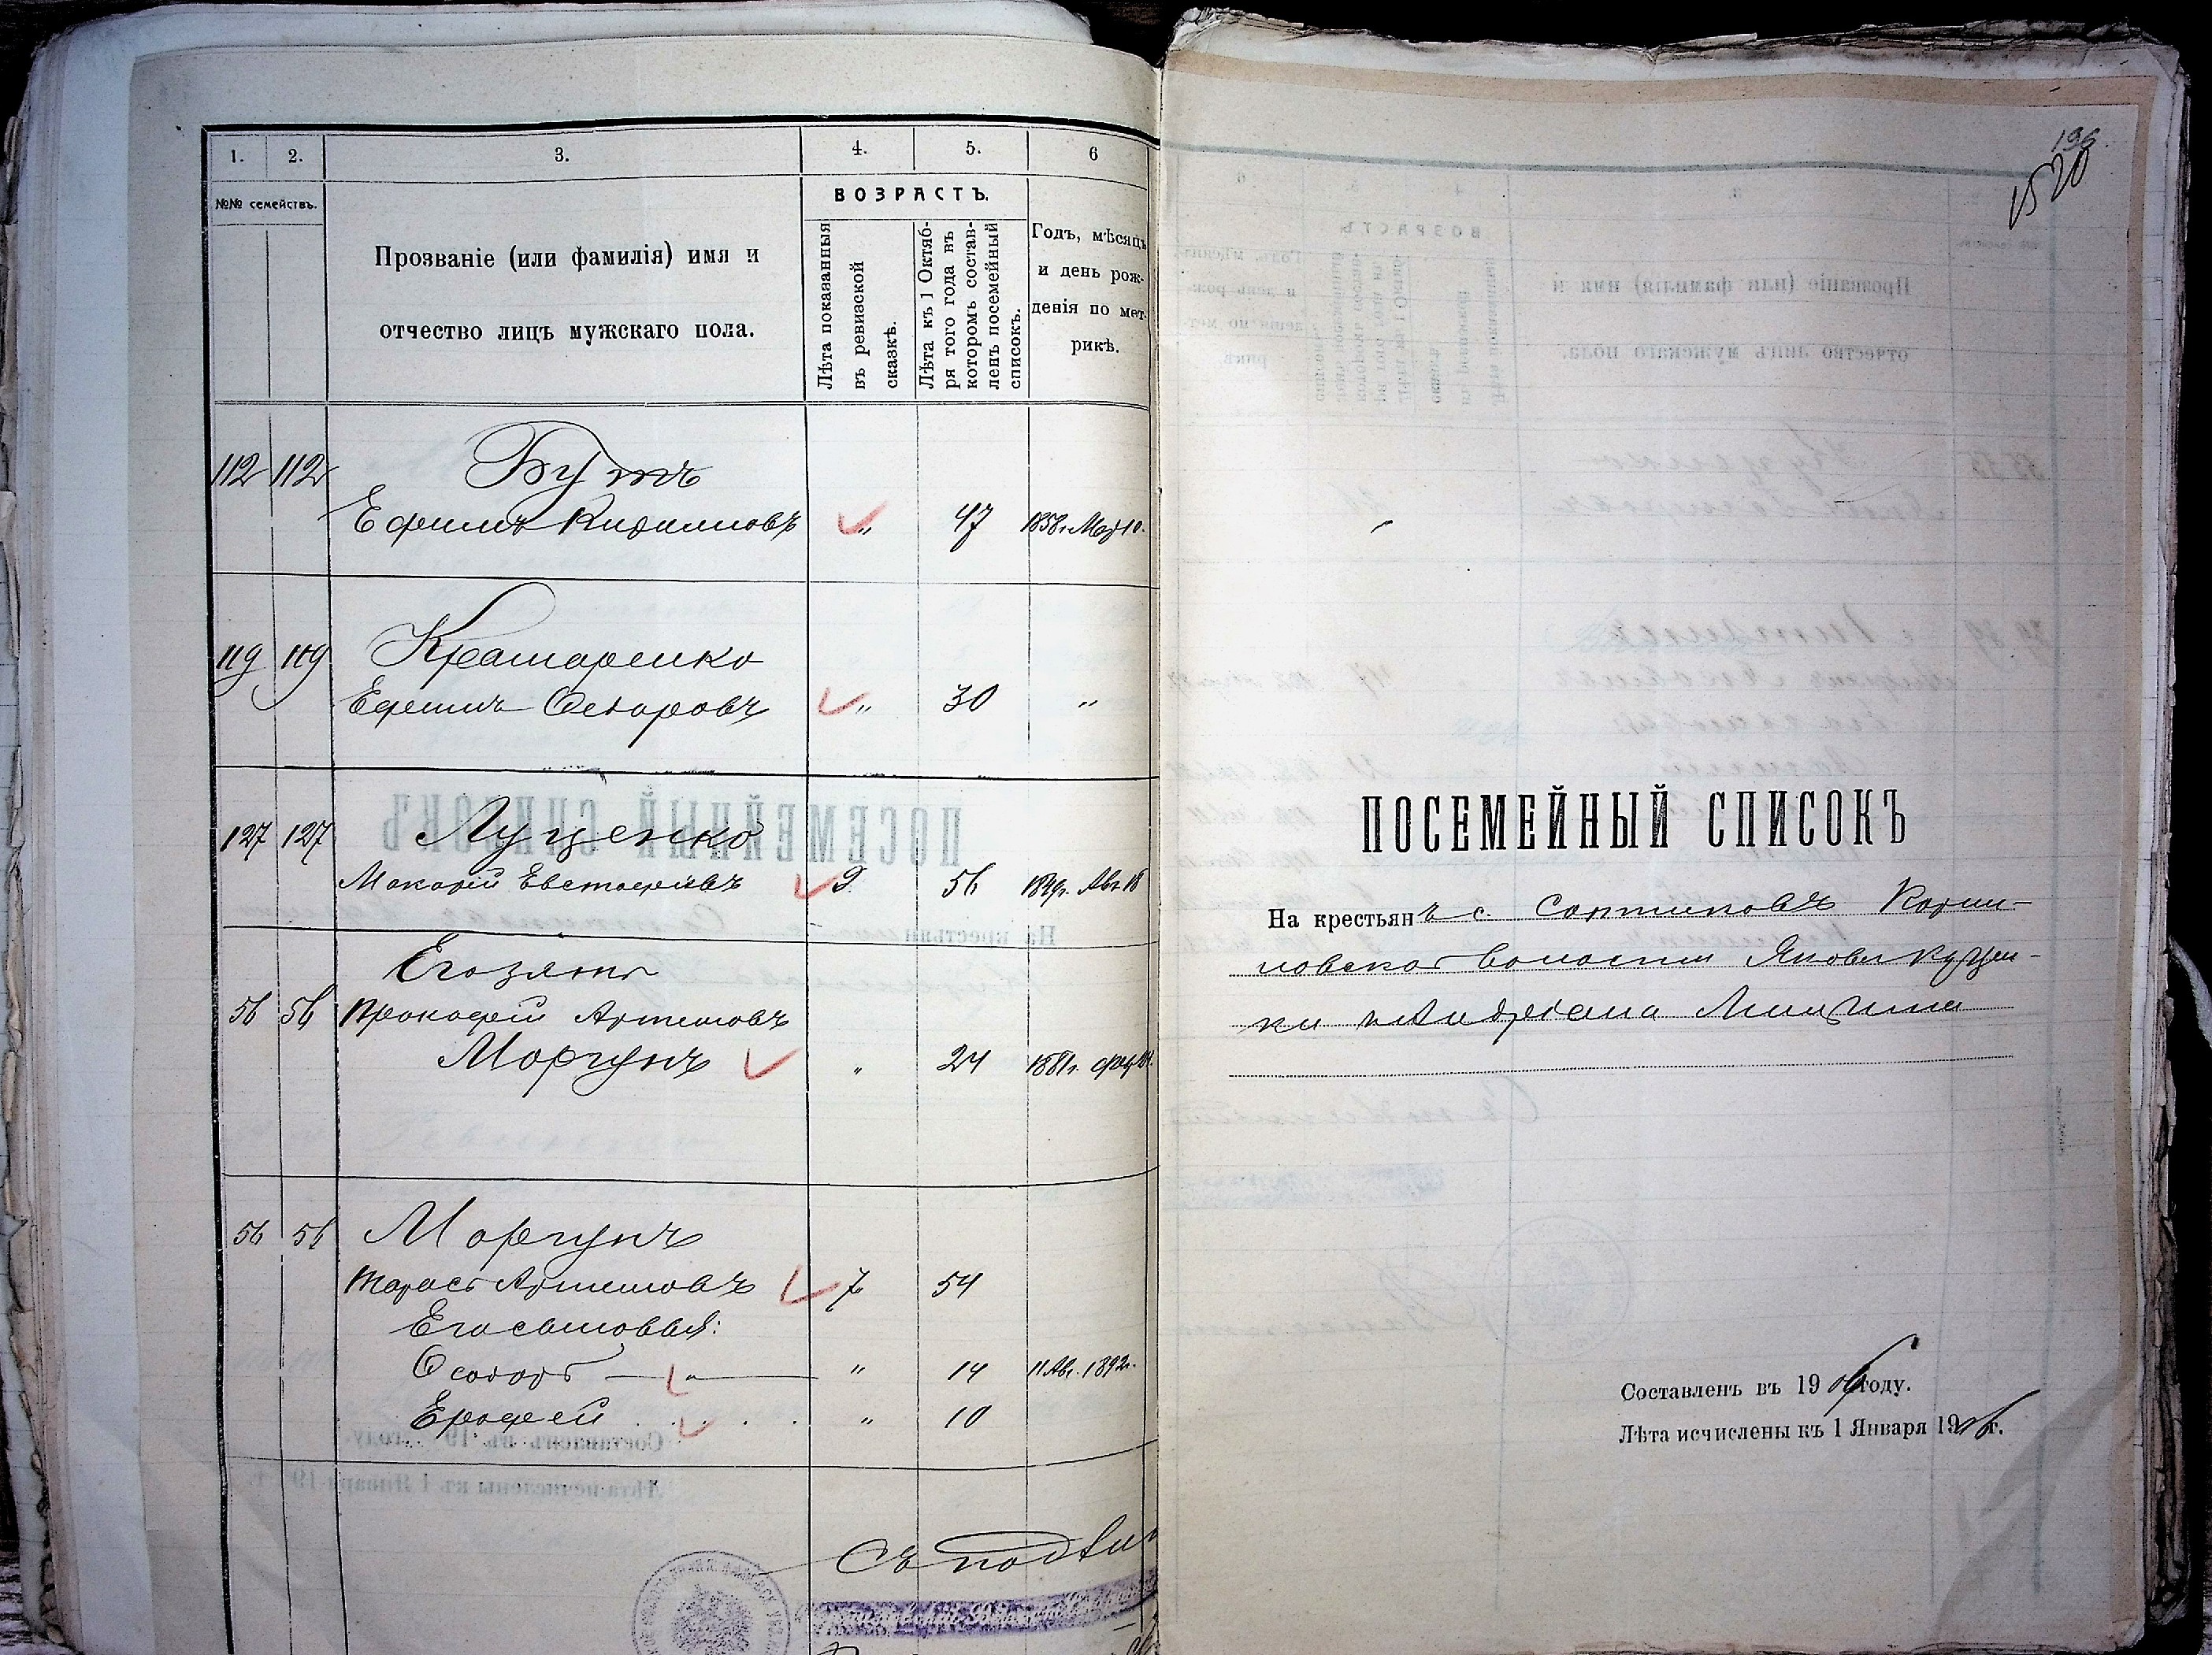 1. 2. 3. 4. 5. 6
№№ семействъ.
Прозваніе (или фамилія) имя и
отчество лицъ мужскаго пола.
ВОЗРАСТЪ.
Лѣта показанныя
въ ревизской
сказкѣ.
Лѣта къ 1 Октяб-
ря того года въ
которомъ состав-
ленъ посемейный
списокъ.
Годъ, мѣсяцъ
и день рож-
денія по мет-
рикѣ.
112 112 Бутъ
Ефимъ Кириловъ " 47 1858г. Мар 10.
119 119 Крамаренко
Ефимъ Федоровъ " 30 "
127 127 Луценко
Макарій Евстафіевъ 9. 56 1849г. Авг. 18
Его зять
56 56 Прокофій Артемовъ
Моргунъ " 24 1881г.
56 56 Моргунъ
Тарасъ Артемовъ 7 54
Его сыновья:
Федоръ — " — " 14 11 Авг. 1892г.
Ерофей . . . . " 10
Съ подли
196.
1520
ПОСЕМЕЙНЫЙ СПИСОКЪ
На крестьянъ с.
волости Якова Куцен-
ки и Андріана
Составленъ въ 1906 году.
Лѣта исчислены къ 1 Января 1906 г.